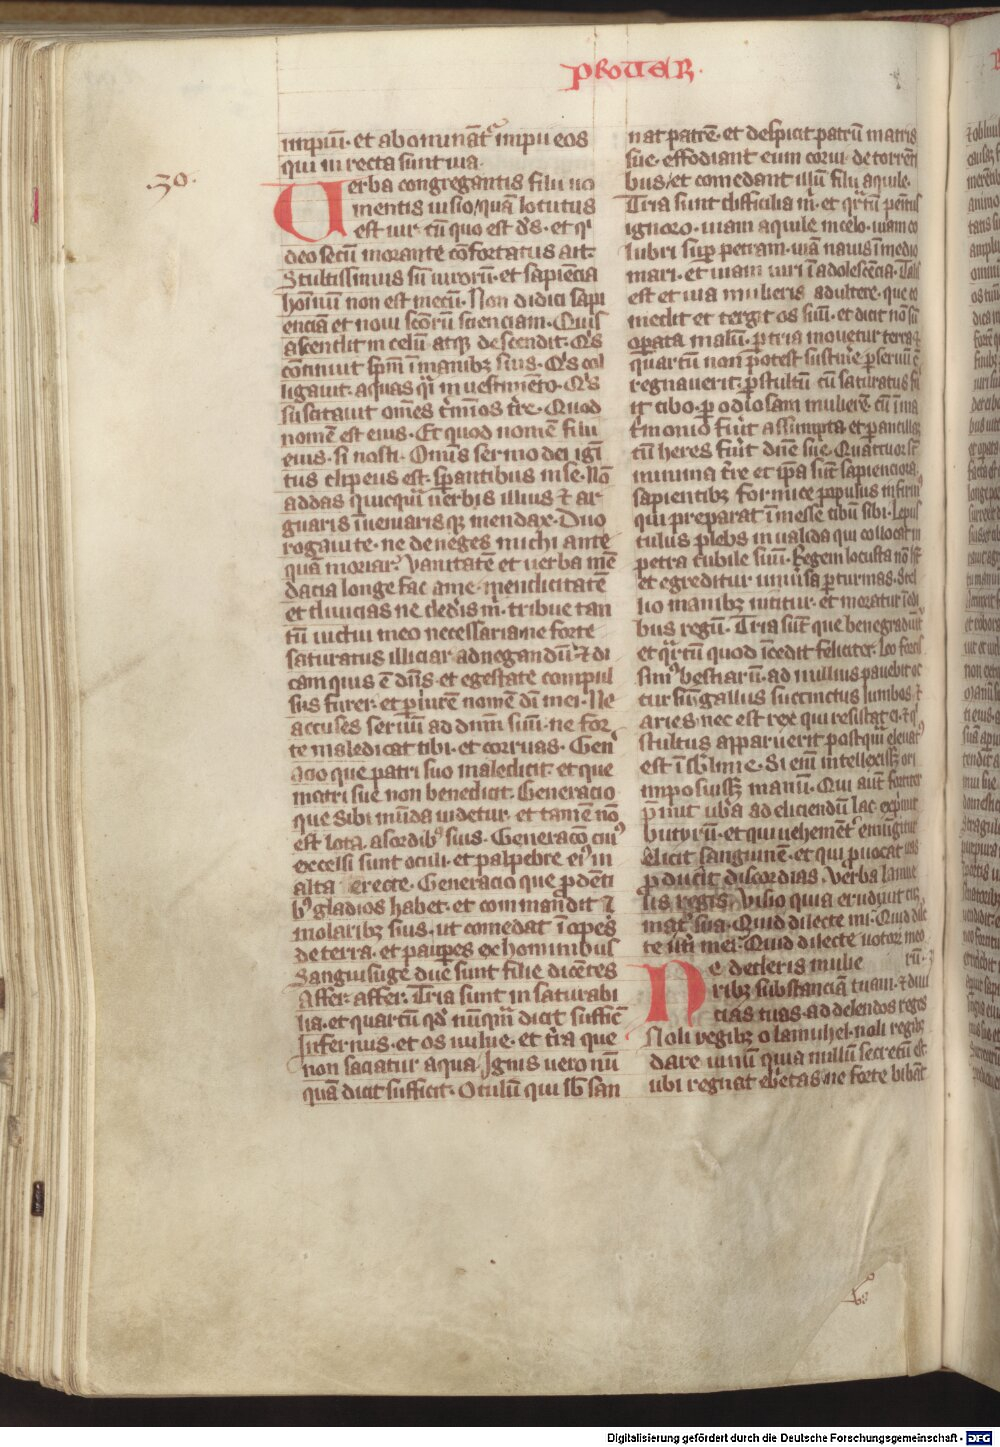 ꝓroueR.
impiū· et abominātᷣ impii eos
qui in recta sunt uia
.30.
Verba congregantis filii uo
mentis uisio/quā locutus
est uir· cū quo est dꝰs· et qi
deo secū morante cōfortatus ait·
Stultissimus sū uirorū· et sapiēcia
hoīnum non est mecū· Non didici sapi
enciā et noui scōrū scienciam· Quis
ascendit in celū atqꝫ descendit· Qis
cōtinuit spm̄ ī manibꝫ suis· Qis col
ligauit· aquas qi in uestimēto· Qis
suscitauit om̄es t̄mīos tre· Quod
nomē est eius· Et quod nomē filii
eius· si nosti· Omīs sermo dei igni
tus clipeus est· sꝑantibus in se· Nō
addas quicqū uerbis illius ⁊ ar
guaris īueniarisqꝫ mendax· Duo
rogaui te· ne deneges michi ante
quā moriar· Vanitatē et uerba mē
dacia longe fac a me· mendicitatē
et diuicias ne dedis m· tribue tan
tū uictui meo necessaria· ne forte
saturatus illiciar ad negandū· ⁊ di
cam quis ē dn̄s· et egestate compul
sus furer· et ꝑiurē nomē dī mei· Ne
accuses seruū ad dnm̄ suū· ne for
te maledicat tibi· et corruas· Gen
acio que patri suo maledicit· et que
matri sue non benedicit· Generacio
que sibi mūda uidetur· et tamē nō
est lota· a sordibꝰ suis· Generacō cuiꝰ
excelsi sunt oculi· et palpebre eiꝰ in
alta erecte· Generacio que ꝓ dēti
bꝰ gladios habet· et commandit ⁊
molaribꝫ suis· ut comedat ī opes
de terra· et pauꝑes ex hominibus
Sanguisuge due sunt filie dicētes
Affer· affer· Tria sunt in saturabi
lia· et quartū qd nūqm̄ dicit suffic
Infernus· et os uulue· et tra que
non saciatur aqua· Ignis uero nū
quā dicit sufficit· Oculū qui sb san
nat patrē· et despicit patrū matris
sue· effodiant eum corui· de torrēti
bus/ et comedant illū filii aquile·
Tria sunt difficilia m· et qrtū penitꝰ
ignoro· uiam aquile in celo· uiam co
lubri suꝑ petram· uiā nauis ī medio
mari· et uiam uiri ī adolescēcia· Talis
est et uia mulieris adultere· que co
medit et tergit os suū· et dicit nō sū
oꝑata malū· ꝑ tria mouetur terra ⁊
quartū non potest sustine· ꝑ seruū cū
regnauerit· ꝑ stultū cū saturatus fu
it cibo· ꝑ odiosam mulierē· cū ī ma
trimonio fuit assumpta et ꝑ ancillaꝫ
cū heres fuit dn̄e sue· Quatuor st
minima tre et ip̄a sūt sapienciora
sapientibꝫ· formice populus infirmꝰ
qui preparat ī messe cibū sibi· Lepus
culus plebs inualida qui collocat in
petra cubile suū· Regem locusta nō ht
et egreditur uniusa ꝑ turmas· Stel
lio manibꝫ nititur· et moratur ī edi
bus regū· Tria sūt que bene gradiūt
et qrtū quod īcedit feliciter· Leo forcis
simꝰ bestiarū· ad nullius pauebit oc
cursū· gallus succinctus lumbos ⁊
aries· nec est rex qui resistat ei· ⁊ q
stultus apparuerit postqm̄ eleuatꝰ
est ī sb̄lime· Si eni intellexissꝫ ori
imposuissꝫ manū· Qui aūt fortiter
p̄mit ub̄a ad eliciendū lac exp̄mit
butyrū· et qui uehement emūgitur
elicit sanguinē· et qui ꝓuocat iras
ꝓducit discordias· Verba lamue
lis regis· Visio qua erudiuit eū
mat sua· Quid dilecte mi· Quid dile
te utri mei· Quid dilecte uotorū meo
Ne dederis mulie rū·
ribꝫ substanciā tuam· ⁊ diui
cias tuas· ad delendos reges
Noli regibꝫ o lamuhel· noli regibꝫ
dare uinū quia nullū secretū est
ubi regnat ebetas· ne forte bibāt
Digitalisierung gefördert durch die Deutsche Forschungsgemeinschaft - DFG